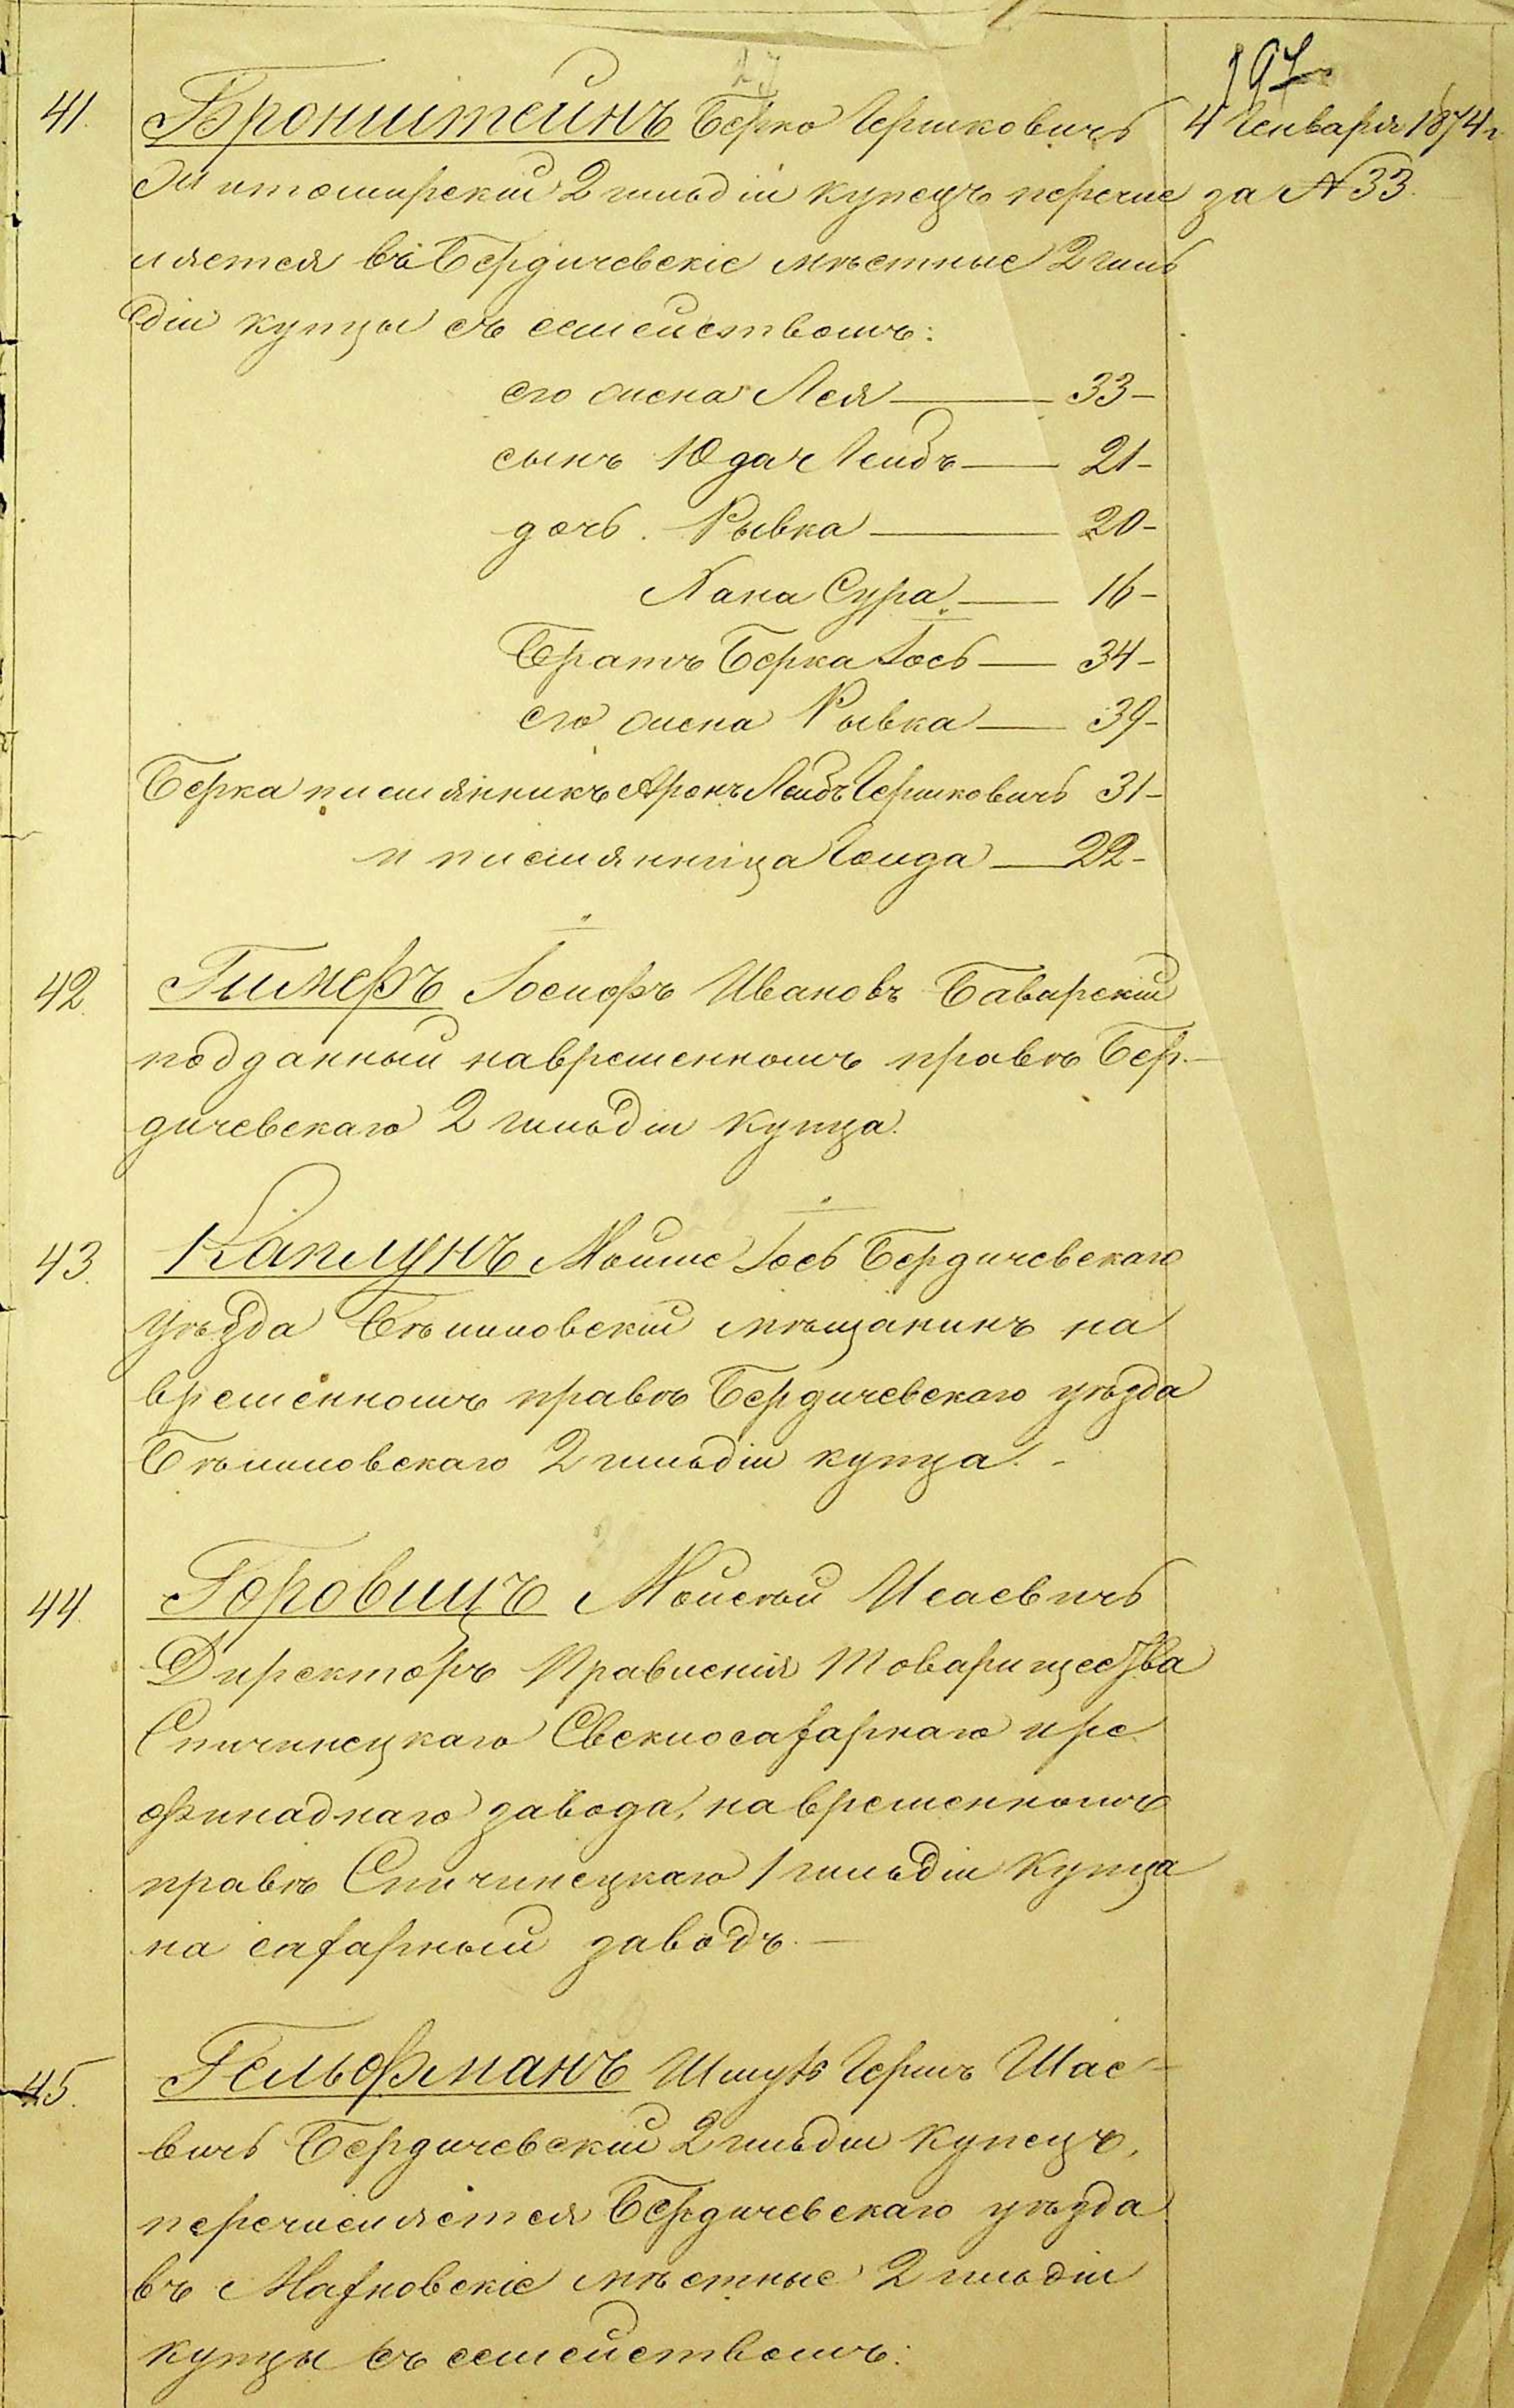 197
41. Бронштейнъ Берко Гершковичъ 4 Генваря 1874 г.
Житомирскій 2 гильдіи купецъ перечис за № 33.
ляется въ Бердичевскіе мѣстные 2 гиль
діи купцы съ семействомъ:
его жена Лея — 33 –
сынъ Юда Лейбъ — 21 –
дочь Рывка — 20 –
Хана Сура — 16 –
Братъ Берка Іось — 34 –
его жена Рывка — 39 –
Берка племянникъ Аронъ Лейбъ Гершковичъ 31 –
и племянница Гоида — 22 –
42. Гимеръ Іосифъ Ивановъ Баварскій
подданный на временномъ правѣ Бер-
дичевскаго 2 гильдіи купца.
43. Каплунъ Мойше Іось Бердичевскаго
уѣзда Бѣлиловскій мѣщанинъ на
временномъ правѣ Бердичевскаго уѣзда
Бѣлиловскаго 2 гильдіи купца. –
44. Горовицъ Мойсѣй Исаевичъ
Директоръ Правленія Товарищества
Спичинецкаго Свеклосахарнаго и ре
финаднаго завода, на временномъ
правѣ Спичинецкаго 1 гильдіи купца
на сахарный заводъ. –
45. Гельфманъ Шмуль Гершъ Шае-
вичъ Бердичевскій 2 гильдіи купецъ,
перечисляется Бердичевскаго уѣзда
въ Махновскіе мѣстные 2 гильдіи
купцы съ семействомъ: